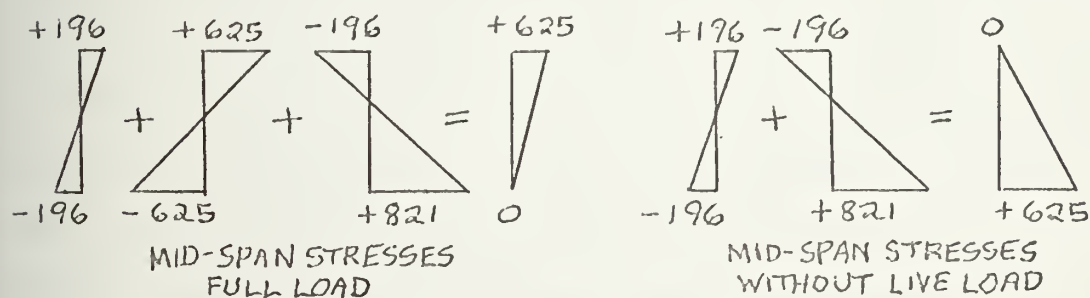 +196 +625 -196 +625
+ + =
-196 -625 +821 0
MID-SPAN STRESSES
FULL LOAD
+196 -196 0
+ =
-196 +821 +625
MID-SPAN STRESSES
WITHOUT LIVE LOAD